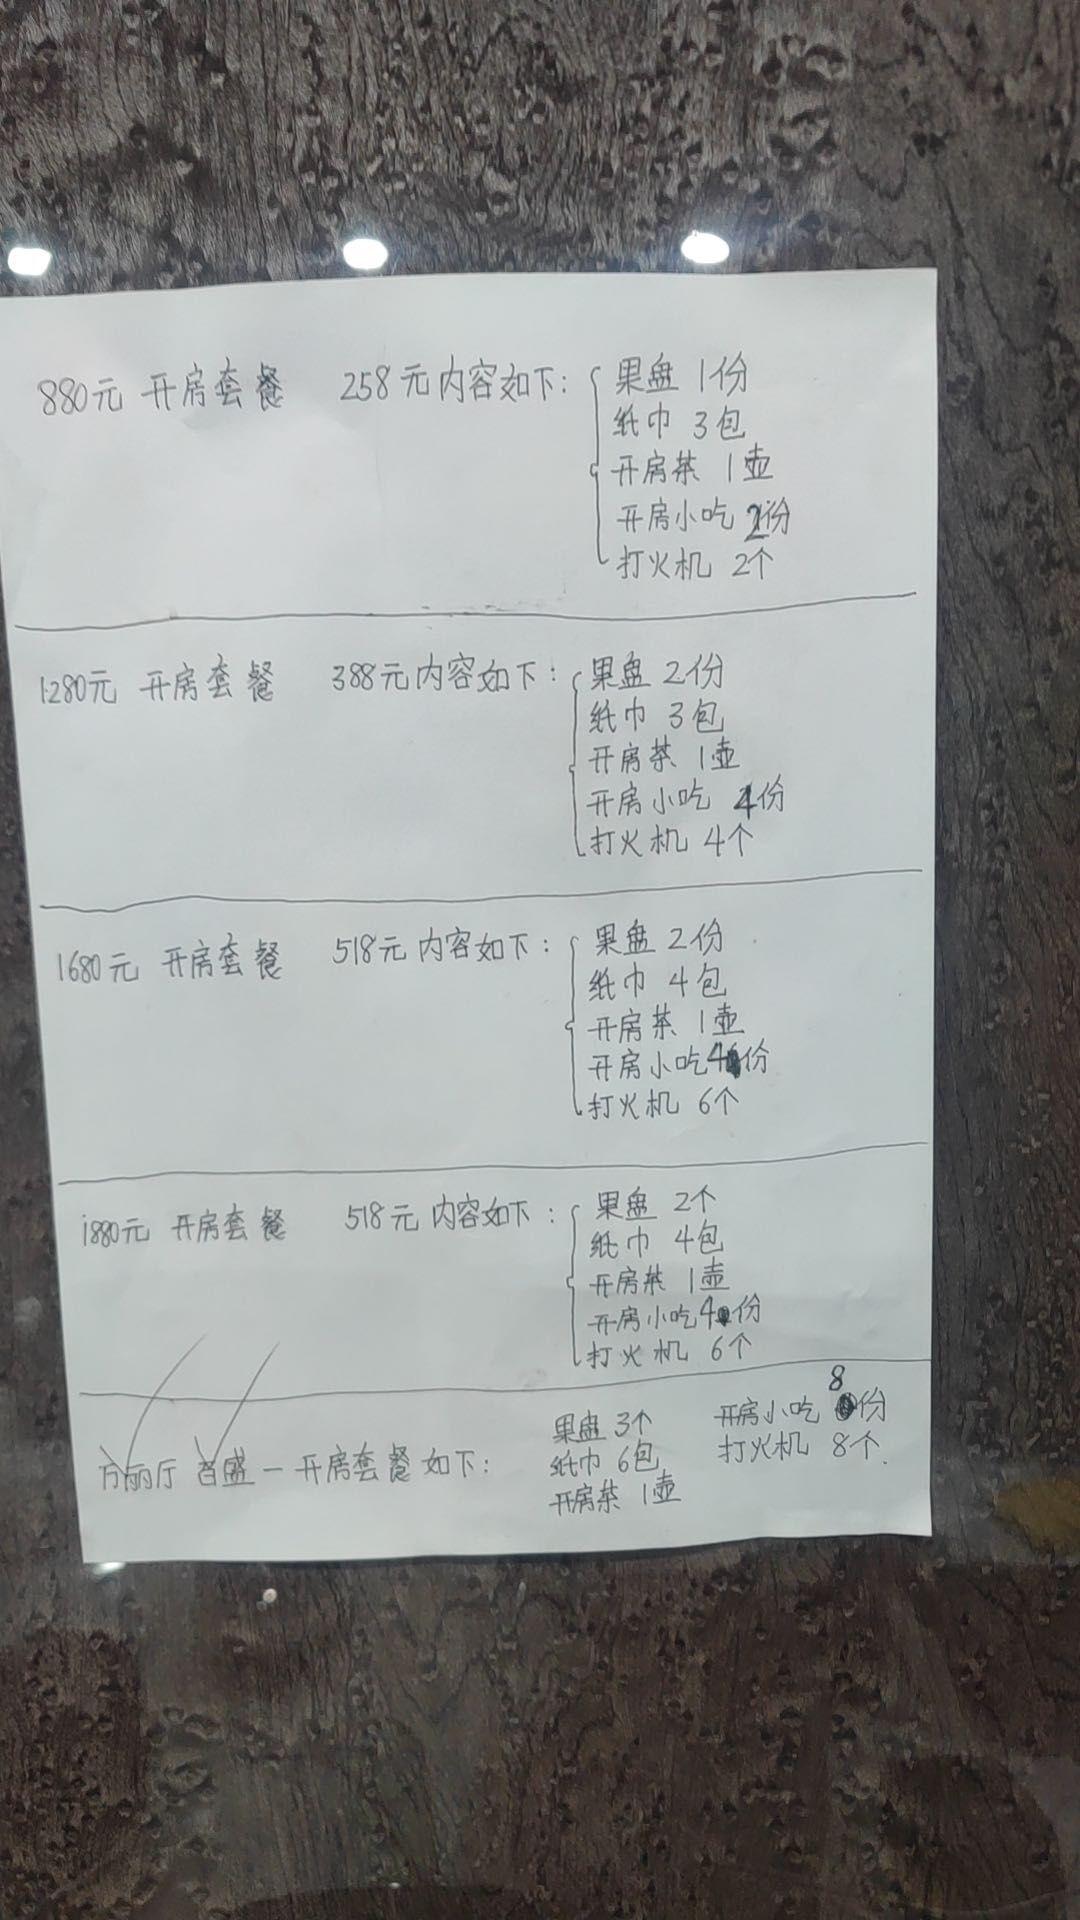 880元 开房套餐 258元内容如下: 果盘 1份
纸巾 3包
开房茶 1壶
开房小吃 2份
打火机 2个
1280元 开房套餐 388元内容如下: 果盘 2份
纸巾 3包
开房茶 1壶
开房小吃 4份
打火机 4个
1680元 开房套餐 518元内容如下: 果盘 2份
纸巾 4包
开房茶 1壶
开房小吃 4份
打火机 6个
1880元 开房套餐 518元内容如下: 果盘 2个
纸巾 4包
开房茶 1壶
开房小吃 4份
打火机 6个
万丽厅 百盛一开房套餐如下: 果盘 3个
纸巾 6包
开房茶 1壶
开房小吃 8份
打火机 8个.